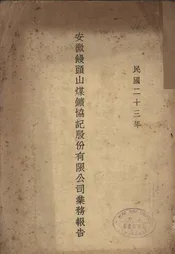 民國二十三年
安徽饅頭山煤鑛協記股份有限公司業務報告